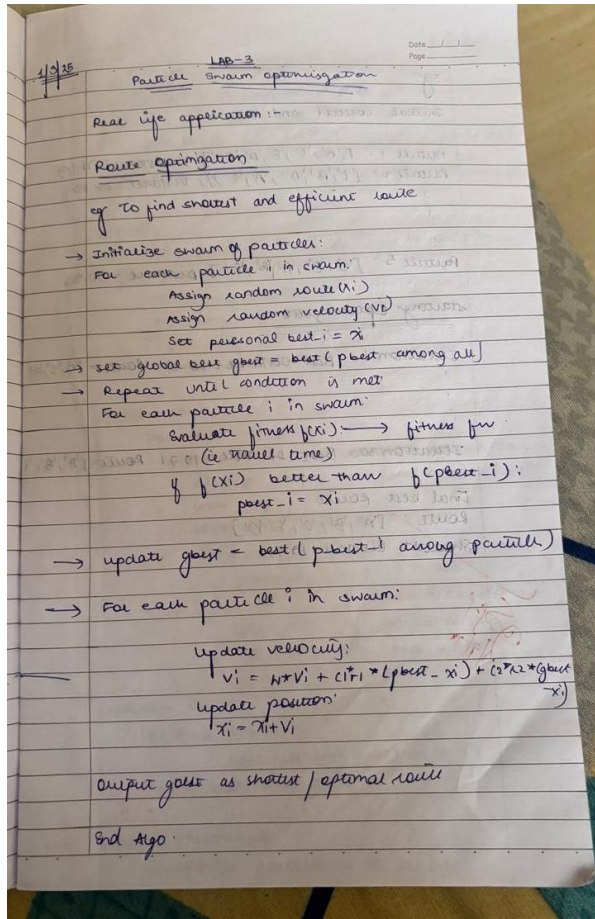 Date
Page
LAB-3
1/3/25
Particle Swarm optimisgation
Real life application :-
Route optimization
eg To find shortest and efficient route
→ Initialize swarm of particles:
For each particle i in swarm:
Assign random route (xi)
Assign random velocity (vi)
Set personal best_i = xi
→ set global best gbest = best (pbest among all)
→ Repeat until condition is met
For each particle i in swarm:
Evaluate fitness f(xi): → fitness fn
(ie travel time)
if f(xi) better than f(pbest_i):
pbest_i = xi
→ update gbest = best (pbest_i among particle)
→ For each particle i in swarm:
update velocity:
vi = w*vi + c1*r1*(pbest - xi) + c2*r2*(gbest
- xi)
update position:
xi = xi + vi
Output gbest as shortest / optimal route
End Algo.